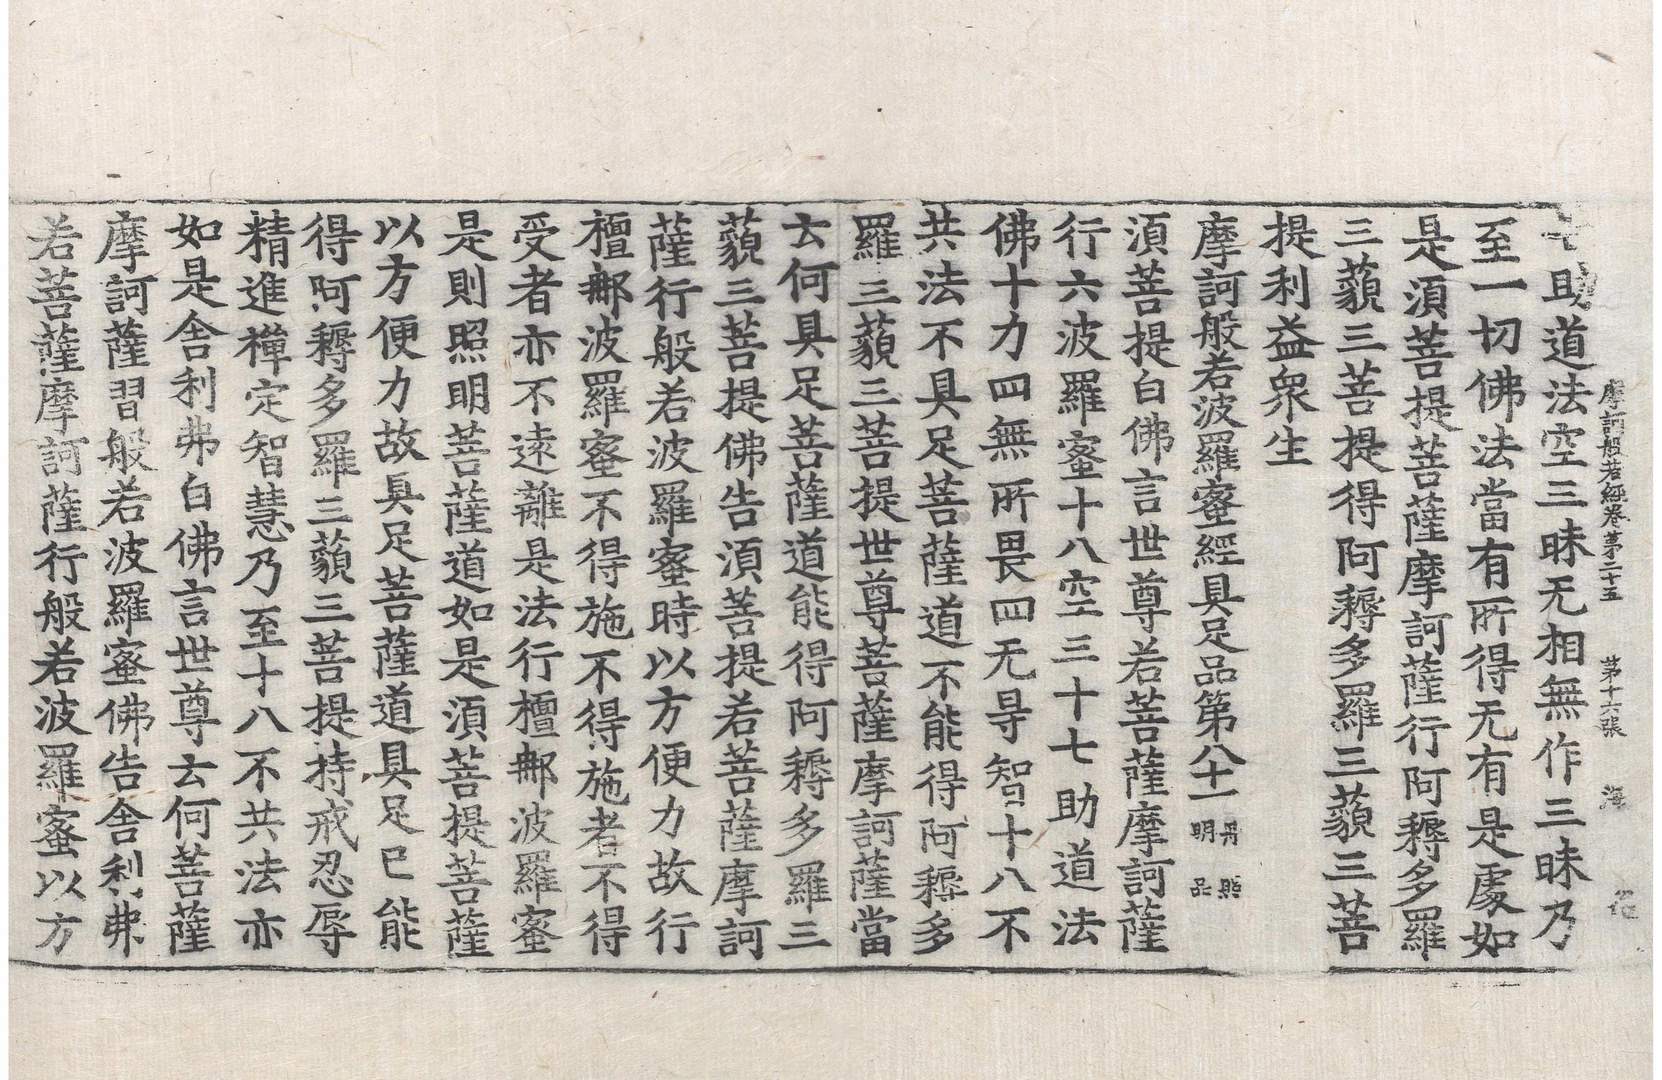 摩訶般若經卷第二十五　第十六張　海
七助道法空三昧无相無作三昧乃
至一切佛法當有所得无有是處如
是須菩提菩薩摩訶薩行阿耨多羅
三藐三菩提得阿耨多羅三藐三菩
提利益衆生
摩訶般若波羅蜜經具足品第八十一 丹照明品
須菩提白佛言世尊若菩薩摩訶薩
行六波羅蜜十八空三十七助道法
佛十力四無所畏四无㝵智十八不
共法不具足菩薩道不能得阿耨多
羅三藐三菩提世尊菩薩摩訶薩當
云何具足菩薩道能得阿耨多羅三
藐三菩提佛告須菩提若菩薩摩訶
薩行般若波羅蜜時以方便力故行
檀那波羅蜜不得施不得施者不得
受者亦不遠離是法行檀那波羅蜜
是則照明菩薩道如是須菩提菩薩
以方便力故具足菩薩道具足已能
得阿耨多羅三藐三菩提持戒忍辱
精進禪定智慧乃至十八不共法亦
如是舍利弗白佛言世尊云何菩薩
摩訶薩習般若波羅蜜佛告舍利弗
若菩薩摩訶薩行般若波羅蜜以方